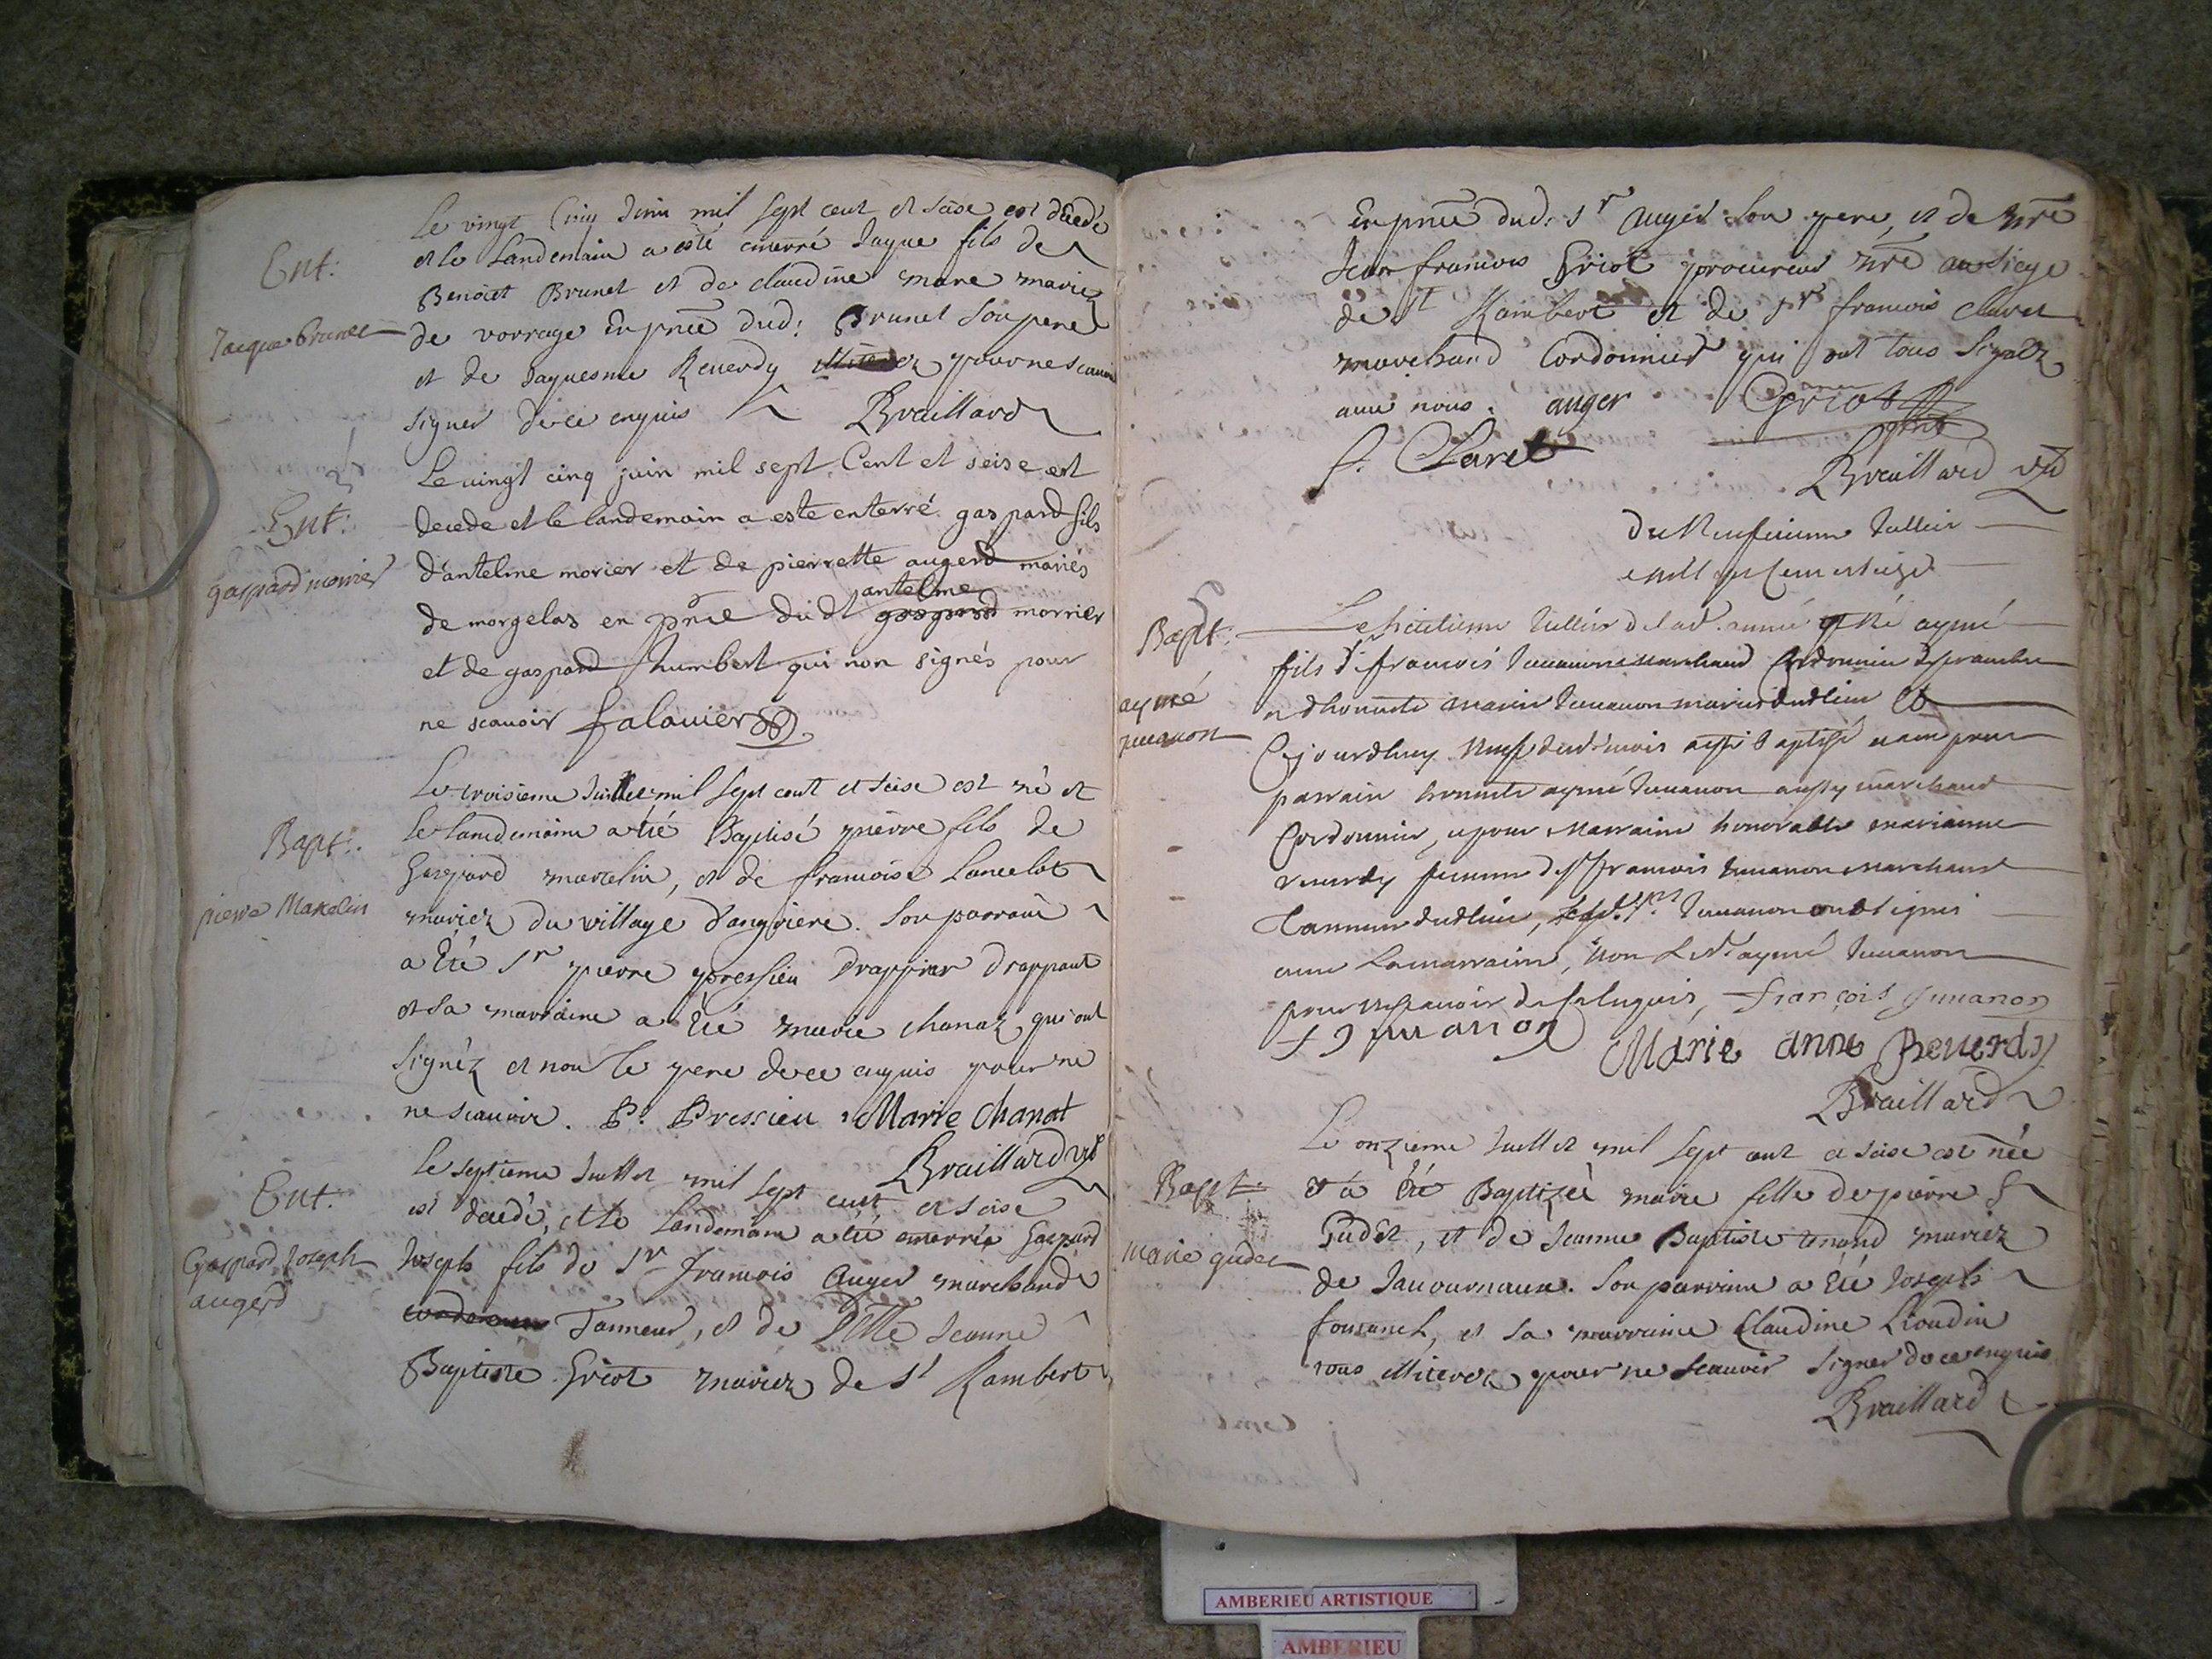 Ent:
Jacque brunet
Le vingt Cinq Juin mil sept cent et seise est decedé
et le Landemain a esté enterré Jaque fils de
Benoist Brunet et de claudine mariez
de vorrage En pnce dud: Brunet Son pere
et de Jaquesme Reverdy illiterez pour ne scavoir
signer de ce enquis Braillard
Ent:
gaspard morrier
Le vingt cinq juin mil sept Cent et seise est
decede et le landemain a este enterré gaspard fils
d'antelme morier et de pierrette augerd mariés
antelme
de morgelas en pnce dudt gaspard morrier
et de gaspard humbert qui non signés pour
ne scavoir falavier
Bapt:
pierre Marcelin
Le troisieme Juillet mil sept cent et seise est né et
le landemain a eté Baptisé pierre fils de
Gaspard marcelin, et de francoise Lancelot
mariez du village d'angriere. Son parrain
a Eté Sr pierre pressieu Drappier drappant
et sa marraine a Eté marie chanaz qui ont
signéz et non le pere de ce enquis pour ne
ne scavoir. P. Pressieu Marie Chanat
Braillard
Ent:
Gaspard Joseph
augerd
Le septieme Juillet mil sept cent et seise
est decedé, et le Landemain a eté enterré Gaspard
Joseph fils de Sr francois Auger marchand
Tanneur, et de Delle Jeanne
Baptiste Griot mariez de St Rambert
En pnce dud: Sr Auger Son pere, et de Mre
Jean francois Griot procureur nre au siege
de St Rambert et de Sr francois Claret
marchand Cordonnier qui ont tous Signez
avec nous. auger Griot
f. Claret
Braillard
Du Neufvieme Juillet
mil sept Cent et seize
Bapt:
aymé
juvanon
Le huitieme Juillet de lad. année est né aymé
fils de Sr francois Juvanon marchand Cordonnier
et d'honneste Marie Juvanon mariés dudt lieu et
Cejourdhuy Neuf dudt mois a esté baptisé ayant pour
parrain honneste aymé Juvanon aussy marchand
Cordonnier, et pour Marraine honorable marianne
reverdy femme de Sr francois Juvanon Marchand
Tanneur dudt lieu, Juvanon ont signés
avec La marraine, Non Ledt aymé Juvanon
pour ne scavoir de ce Enquis, françois Juvanon
f Juvanon Marie anne Reverdy
Braillard
Bapt:
Marie gudet
Le onzieme Juillet mil sept cent et seise est née
et a Eté Baptizée marie fille de pierre
Gudet, et de Jeanne Baptiste tenand mariez
de Javournaux. Son parrain a Eté Joseph
fouranch, et sa marraine Claudine Lioudin
tous illiterez pour ne scavoir signer de ce enquis
Braillard
AMBERIEU ARTISTIQUE
AMBERIEU